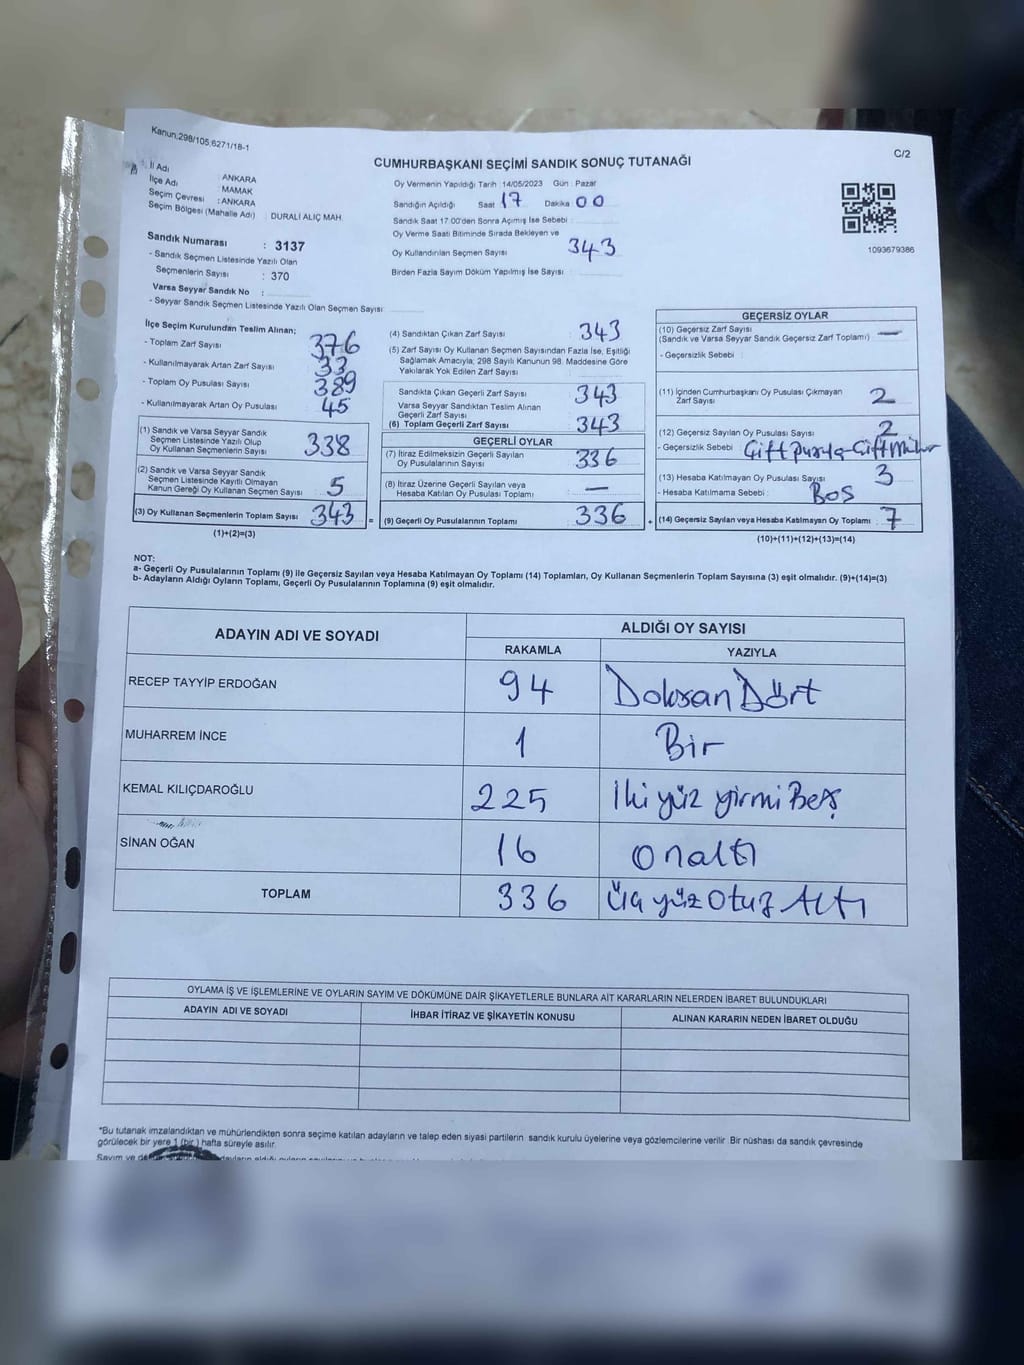 Kanun.298/105.6271/18-1
C/2
CUMHURBAŞKANI SEÇİMİ SANDIK SONUÇ TUTANAĞI
İl Adı : ANKARA
İlçe Adı : MAMAK
Seçim Çevresi : ANKARA
Seçim Bölgesi (Mahalle Adı) : DURALİ ALIÇ MAH.
Sandık Numarası : 3137
- Sandık Seçmen Listesinde Yazılı Olan
Seçmenlerin Sayısı : 370
Varsa Seyyar Sandık No :
- Seyyar Sandık Seçmen Listesinde Yazılı Olan Seçmen Sayısı :
Oy Vermenin Yapıldığı Tarih : 14/05/2023 Gün : Pazar
Sandığın Açıldığı Saat 17 Dakika 00
Sandık Saat 17:00'den Sonra Açımış İse Sebebi :
Oy Verme Saati Bitiminde Sırada Bekleyen ve
Oy Kullandırılan Seçmen Sayısı 343
Birden Fazla Sayım Döküm Yapılmış İse Sayısı :
1093679386
İlçe Seçim Kurulundan Teslim Alınan;
- Toplam Zarf Sayısı : 376
- Kullanılmayarak Artan Zarf Sayısı : 33
- Toplam Oy Pusulası Sayısı : 389
- Kullanılmayarak Artan Oy Pusulası : 45
(1) Sandık ve Varsa Seyyar Sandık
Seçmen Listesinde Yazılı Olup
Oy Kullanan Seçmenlerin Sayısı : 338
(2) Sandık ve Varsa Seyyar Sandık
Seçmen Listesinde Kayıtlı Olmayan
Kanun Gereği Oy Kullanan Seçmen Sayısı : 5
(3) Oy Kullanan Seçmenlerin Toplam Sayısı : 343 =
(1)+(2)=(3)
(4) Sandıktan Çıkan Zarf Sayısı : 343
(5) Zarf Sayısı Oy Kullanan Seçmen Sayısından Fazla İse, Eşitliği
Sağlamak Amacıyla; 298 Sayılı Kanunun 98. Maddesine Göre
Yakılarak Yok Edilen Zarf Sayısı :
Sandıkta Çıkan Geçerli Zarf Sayısı : 343
Varsa Seyyar Sandıktan Teslim Alınan
Geçerli Zarf Sayısı :
(6) Toplam Geçerli Zarf Sayısı : 343
GEÇERLİ OYLAR
(7) İtiraz Edilmeksizin Geçerli Sayılan
Oy Pusulalarının Sayısı : 336
(8) İtiraz Üzerine Geçerli Sayılan veya
Hesaba Katılan Oy Pusulası Toplamı : —
(9) Geçerli Oy Pusulalarının Toplamı : 336 +
GEÇERSİZ OYLAR
(10) Geçersiz Zarf Sayısı
(Sandık ve Varsa Seyyar Sandık Geçersiz Zarf Toplamı) : —
- Geçersizlik Sebebi :
(11) İçinden Cumhurbaşkanı Oy Pusulası Çıkmayan
Zarf Sayısı : 2
(12) Geçersiz Sayılan Oy Pusulası Sayısı : 2
- Geçersizlik Sebebi :
(13) Hesaba Katılmayan Oy Pusulası Sayısı : 3
- Hesaba Katılmama Sebebi : Bos
(14) Geçersiz Sayılan veya Hesaba Katılmayan Oy Toplamı : 7
(10)+(11)+(12)+(13)=(14)
NOT:
a- Geçerli Oy Pusulalarının Toplamı (9) ile Geçersiz Sayılan veya Hesaba Katılmayan Oy Toplamı (14) Toplamları, Oy Kullanan Seçmenlerin Toplam Sayısına (3) eşit olmalıdır. (9)+(14)=(3)
b- Adayların Aldığı Oyların Toplamı, Geçerli Oy Pusulalarının Toplamına (9) eşit olmalıdır.
ADAYIN ADI VE SOYADI
ALDIĞI OY SAYISI
RAKAMLA YAZIYLA
RECEP TAYYİP ERDOĞAN 94 Doksan Dört
MUHARREM İNCE 1 Bir
KEMAL KILIÇDAROĞLU 225 İki yüz yirmi Beş
SİNAN OĞAN 16 onaltı
TOPLAM 336 Üç yüz otuz Altı
OYLAMA İŞ VE İŞLEMLERİNE VE OYLARIN SAYIM VE DÖKÜMÜNE DAİR ŞİKAYETLERLE BUNLARA AİT KARARLARIN NELERDEN İBARET BULUNDUKLARI
ADAYIN ADI VE SOYADI İHBAR İTİRAZ VE ŞİKAYETİN KONUSU ALINAN KARARIN NEDEN İBARET OLDUĞU
*Bu tutanak imzalandıktan ve mühürlendikten sonra seçime katılan adayların ve talep eden siyasi partilerin sandık kurulu üyelerine veya gözlemcilerine verilir. Bir nüshası da sandık çevresinde
görülecek bir yere 1 (bir) hafta süreyle asılır.
Sayım ve